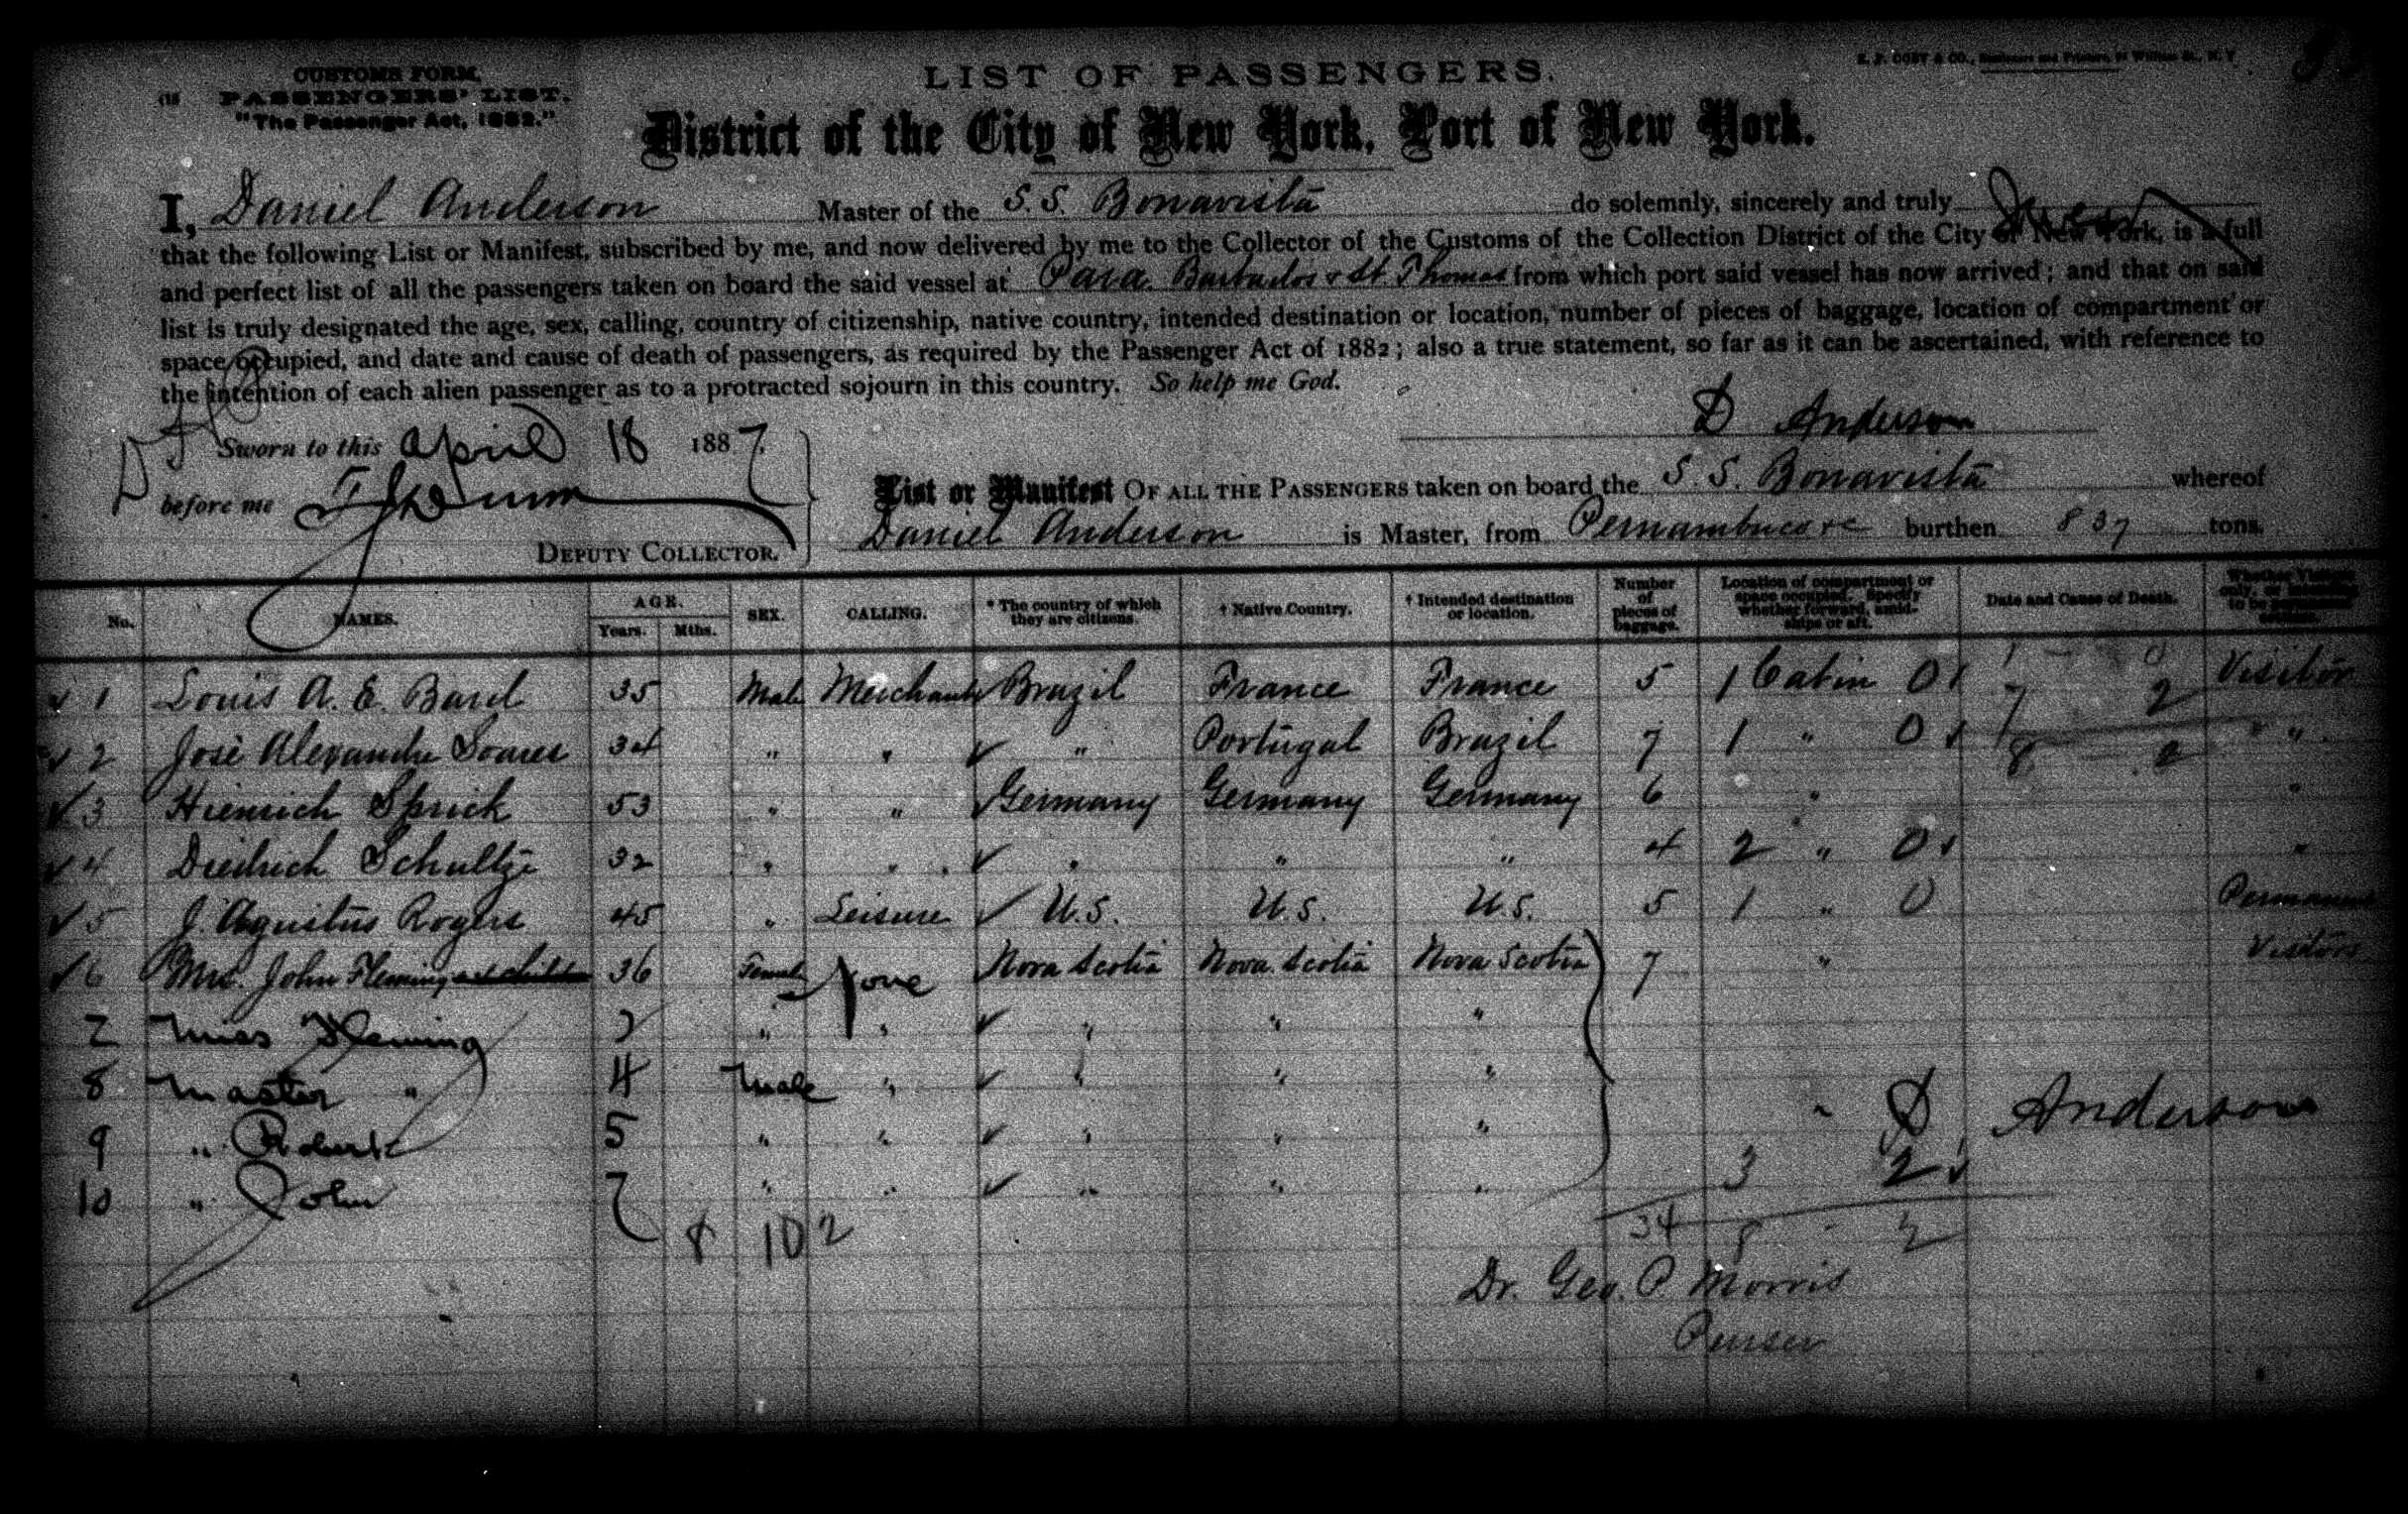 CUSTOMS FORM.
PASSENGERS' LIST.
"The Passenger Act, 1882."
LIST OF PASSENGERS.
District of the City of New York, Port of New York.
I, Daniel Anderson Master of the S. S. Bonavista do solemnly, sincerely and truly
that the following List or Manifest, subscribed by me, and now delivered by me to the Collector of the Customs of the Collection District of the City of New York, is a full
and perfect list of all the passengers taken on board the said vessel at Para Barbados & St. Thomas from which port said vessel has now arrived; and that on said
list is truly designated the age, sex, calling, country of citizenship, native country, intended destination or location, number of pieces of baggage, location of compartment or
space occupied, and date and cause of death of passengers, as required by the Passenger Act of 1882; also a true statement, so far as it can be ascertained, with reference to
the intention of each alien passenger as to a protracted sojourn in this country. So help me God.
D Anderson
Sworn to this April 18 1887.
before me
DEPUTY COLLECTOR.
List or Manifest OF ALL THE PASSENGERS taken on board the S. S. Bonavista whereof
Daniel Anderson is Master, from Pernambuco &c burthen 837 tons.
No. NAMES. AGE. Years. Mths. SEX. CALLING. * The country of which they are citizens. † Native Country. † Intended destination or location. Number of pieces of baggage. Location of compartment or space occupied. Specify whether forward, amidships or aft. Date and Cause of Death.
1 Louis A. E. Bard 35 Male Merchant Brazil France France 5 1 Cabin 0 Visitor
2 José Alexandre Soares 34 " " " Portugal Brazil 7 1 " 0 "
3 Hienrich Sprick 53 " " Germany Germany Germany 6 " "
4 Diedrich Schultze 32 " " " " " 4 2 " 0 "
5 J. Agustus Rogers 45 " Leisure U.S. U.S. U.S. 5 1 " 0 Permanent
6 Mrs. John Fleming 36 Female None Nova Scotia Nova Scotia Nova Scotia 7 " Visitors
7 Miss Fleming 2 " " " " "
8 Master " 4 Male " " " "
9 " Robert 5 " " " " "
10 " John 7 " " " " "
D Anderson
3 2
8 10 2
34 8 - 2
Dr. Geo. P Morris
Purser